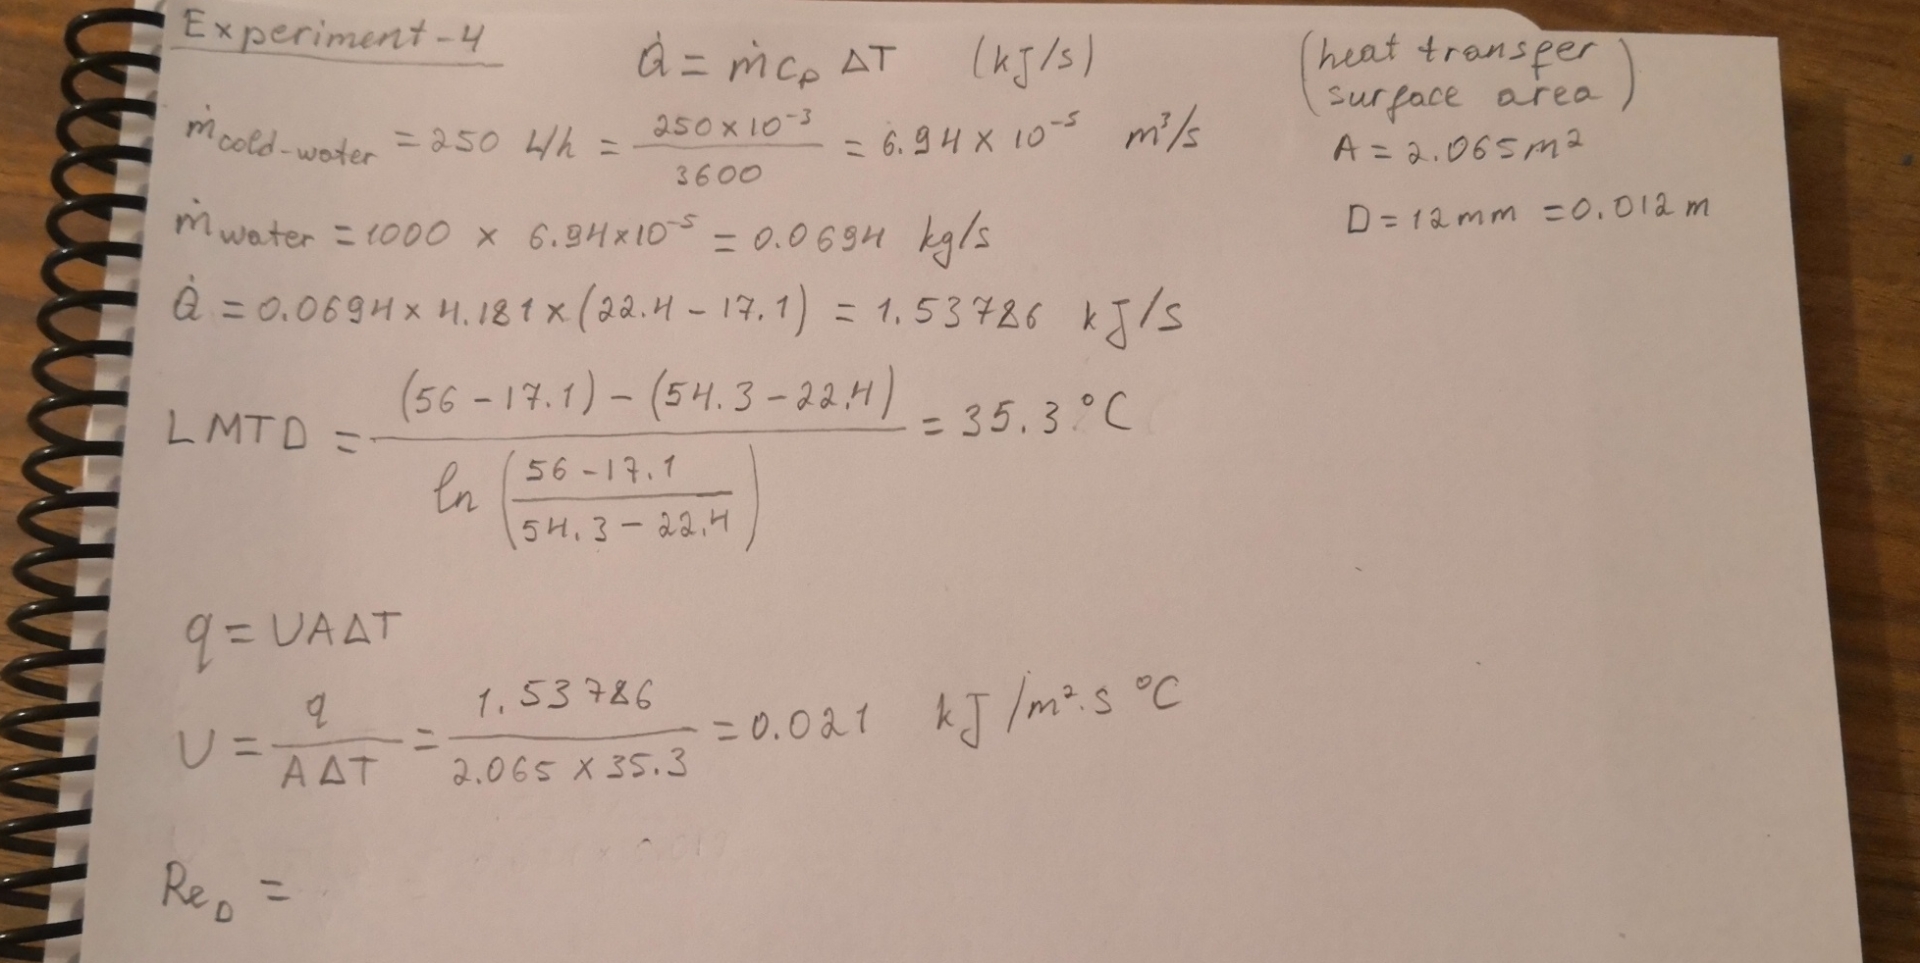 Experiment-4
Q̇ = ṁc_p ΔT (kJ/s)
(heat transfer
surface area)
ṁ_cold-water = 250 L/h = 250×10⁻³ / 3600 = 6.94 × 10⁻⁵ m³/s
A = 2.065 m²
ṁ_water = 1000 × 6.94×10⁻⁵ = 0.0694 kg/s
D = 12 mm = 0.012 m
Q̇ = 0.0694 × 4.181 × (22.4 - 17.1) = 1.53786 kJ/s
LMTD = (56 - 17.1) - (54.3 - 22.4) / ln (56 - 17.1 / 54.3 - 22.4) = 35.3 °C
q = UAΔT
U = q / AΔT = 1.53786 / 2.065 × 35.3 = 0.021 kJ/m².s °C
Re_D =